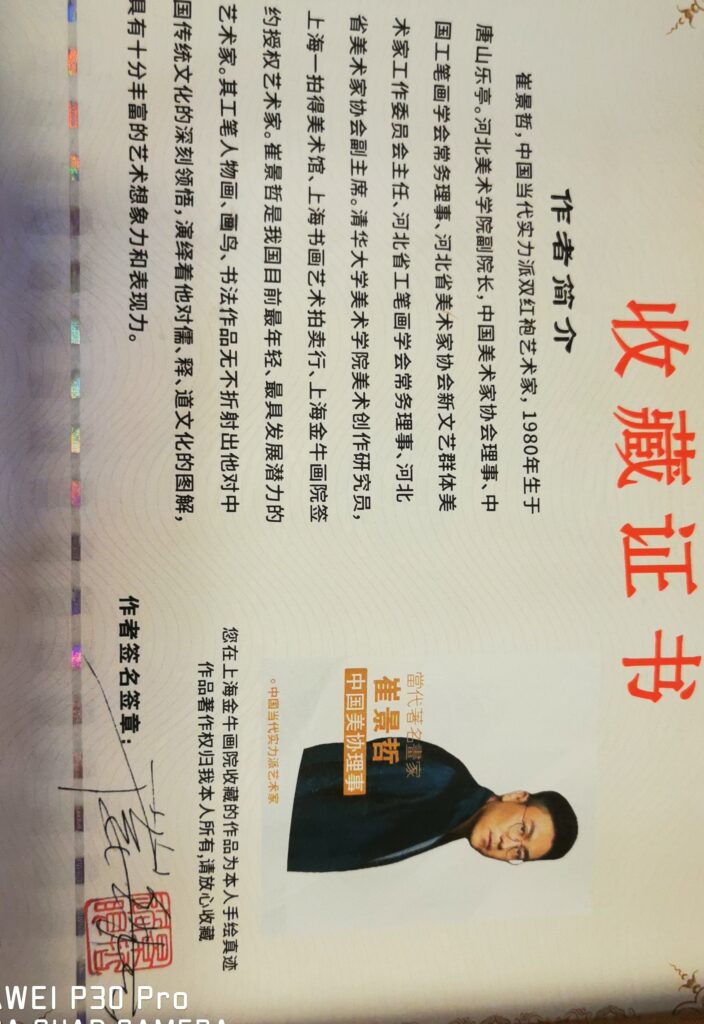 收藏证书
作者简介
崔景哲，中国当代实力派双红袍艺术家，1980年生于
唐山乐亭。河北美术学院副院长，中国美术家协会理事、中
国工笔画学会常务理事、河北省美术家协会新文艺群体美
术家工作委员会主任、河北省工笔画学会常务理事、河北
省美术家协会副主席。清华大学美术学院美术创作研究员，
上海一拍得美术馆、上海书画艺术拍卖行、上海金牛画院签
约授权艺术家。崔景哲是我国目前最年轻、最具发展潜力的
艺术家。其工笔人物画、画鸟、书法作品无不折射出他对中
国传统文化的深刻领悟，演绎着他对儒、释、道文化的图解，
具有十分丰富的艺术想象力和表现力。
當代著名畫家
崔景哲
中国美协理事
。中国当代实力派艺术家
您在上海金牛画院收藏的作品为本人手绘真迹
作品著作权归我本人所有,请放心收藏
作者签名签章：
AWEI P30 Pro
A QUAD CAMERA